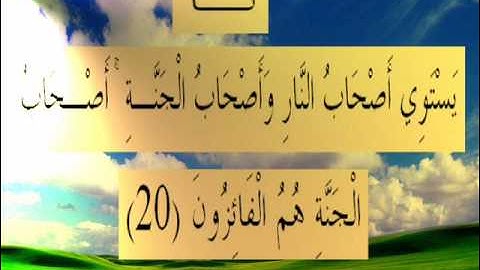 يَسْتَوِي أَصْحَابُ النَّارِ وَأَصْحَابُ الْجَنَّـــةِ ۚ أَصْـــحَابُ
الْجَنَّةِ هُمُ الْفَائِزُونَ (20)